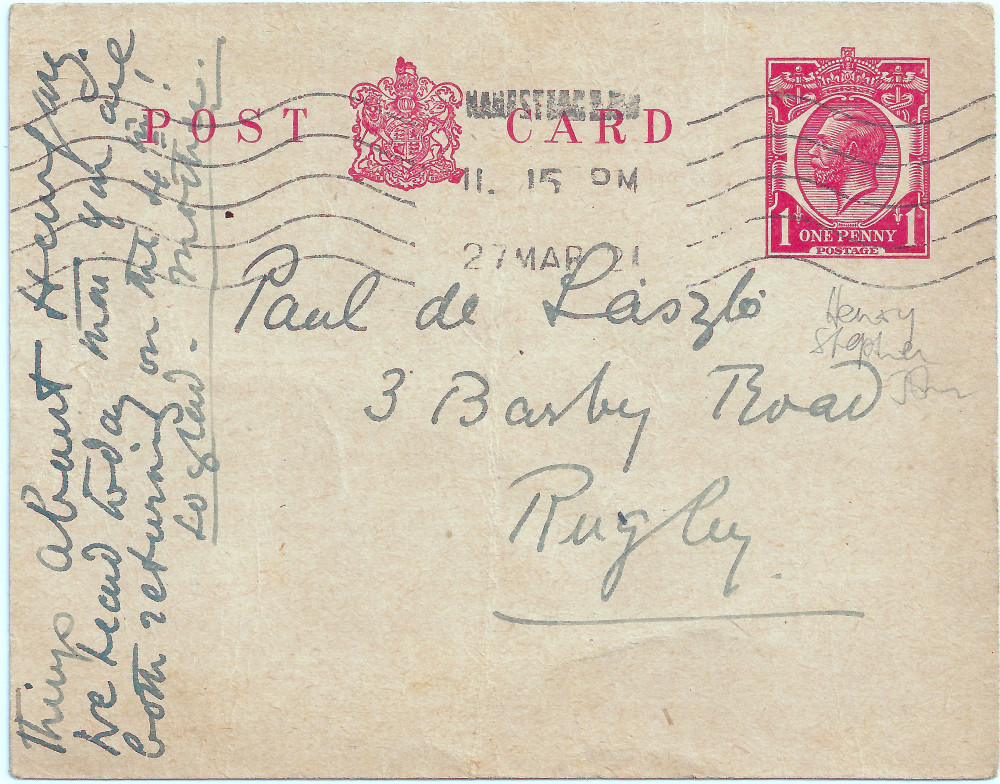 POST CARD
11. 15 PM
27 MAR 21
1 ONE PENNY 1
POSTAGE
Paul de László
3 Barby Road
Rugby.
Henry
Stephen
John
things about Henry
we heard today man you are
both returning on the 4th
so glad. Mother.